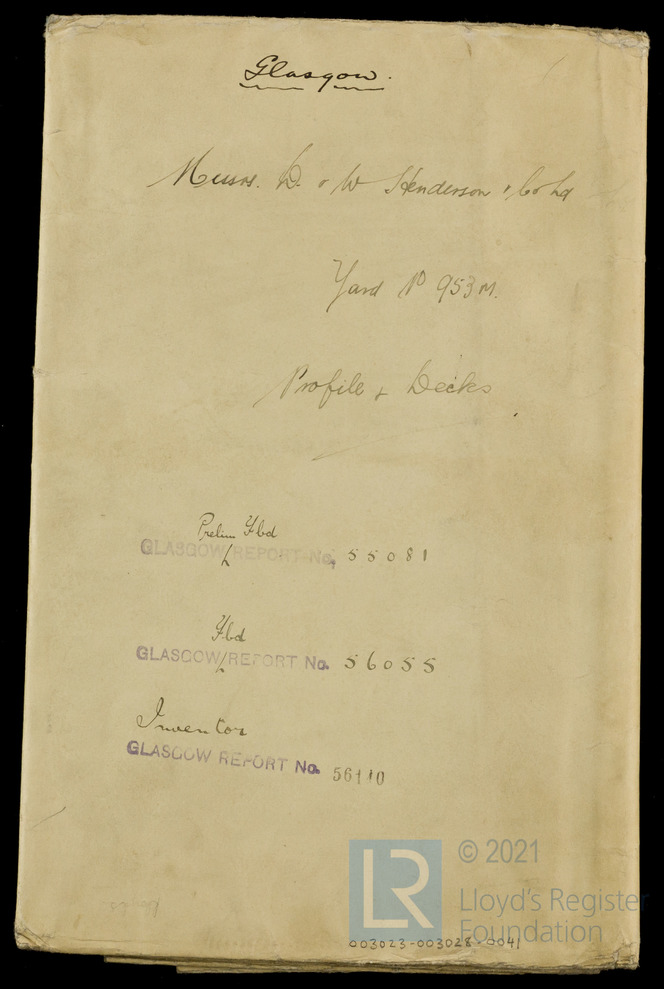 Glasgow.
Messrs. D. & W Henderson & Co Ld
Yard No 953M.
Profile & Decks
Prelim Fbd
GLASGOW REPORT No. 55081
Fbd
GLASGOW REPORT No. 56055
Inventor
GLASGOW REPORT No. 56110
LR
© 2021
Lloyd's Register
Foundation
003023-003028-0041